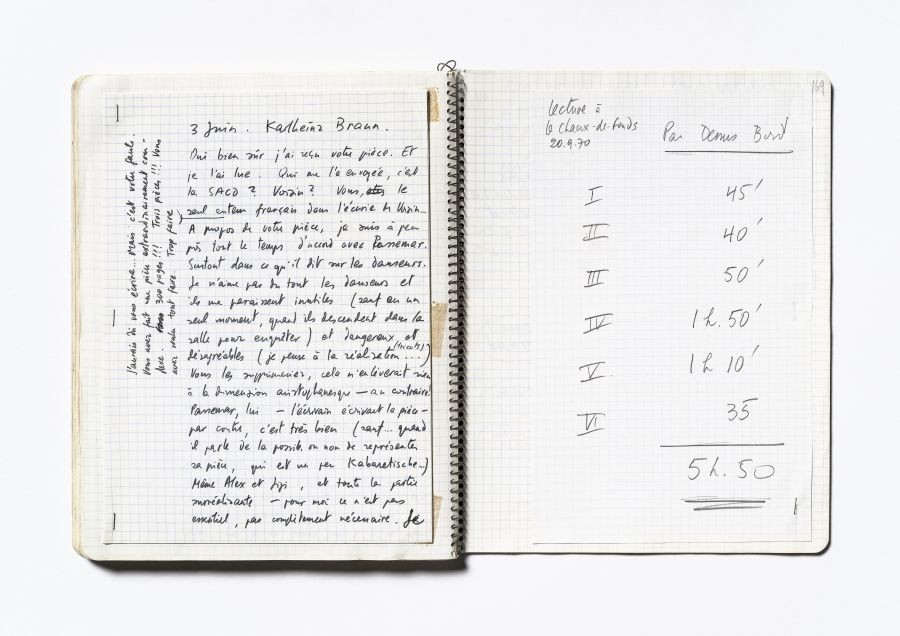 3 Juin. Karlheinz Braun.
Oui bien sûr j'ai reçu votre pièce. Et
je l'ai lue. Qui me l'a envoyée, c'est
la SACD ? Voisin ? Vous, le
seul auteur français dans l'écurie de Voisin...
A propos de votre pièce, je suis à peu
près tout le temps d'accord avec Passemar.
Surtout dans ce qu'il dit sur les danseurs.
Je n'aime pas du tout les danseurs et
ils me paraissent inutiles (sauf en un
seul moment, quand ils descendent dans la
salle pour enquêter) et dangereux et
désagréables (je pense à la réalisation ....)
(tricots)
Vous les supprimeriez, cela n'enlèverait rien
à la dimension aristophanesque — au contraire.
Passemar, lui — l'écrivain écrivant la pièce —
par contre, c'est très bien (sauf... quand
il parle de la possib. ou non de représenter
sa pièce, qui est un peu Kabarettische...)
Même Alex et Jiji, et toute la partie
— pour moi ce n'est pas
essentiel, pas complètement nécessaire. Je
J'aurais dû vous écrire... Mais c'est votre faute.
Vous avez fait une pièce extraordinairement con-
fuse. 300 pages !!! Trois pièces !!! Vous
avez voulu tout faire. Trop faire
169
Lecture à
la Chaux-de-Fonds
20.9.70
Par Denis Bord
I 45'
II 40'
III 50'
IV 1 h. 50'
V. 1 h 10'
VI 35
5 h. 50